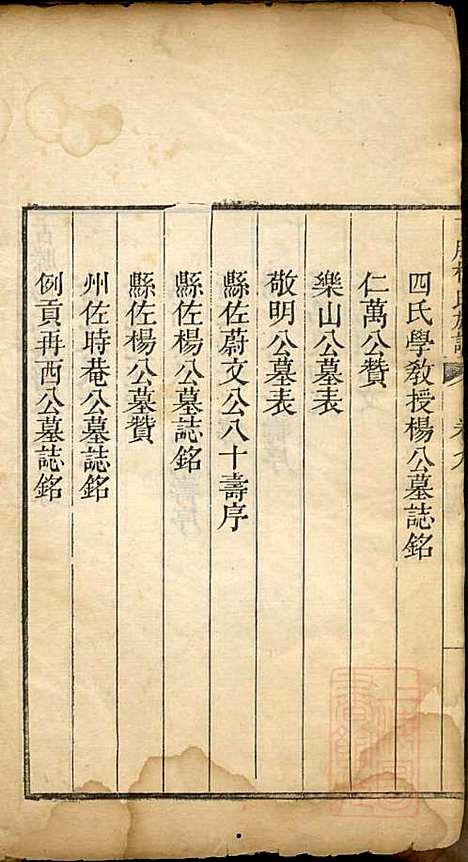 四氏學教授楊公墓誌銘
仁萬公贊
樂山公墓表
敬明公墓表
縣佐蔚文公八十壽序
縣佐楊公墓誌銘
縣佐楊公墓贊
州佐時菴公墓誌銘
例貢再西公墓誌銘
卷九